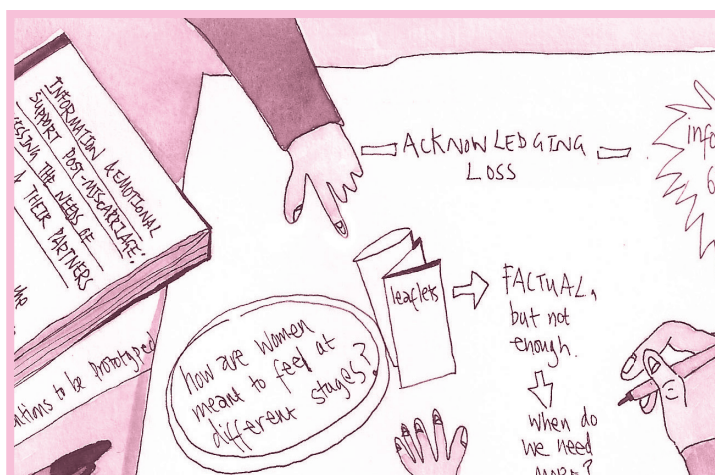 INFORMATION & EMOTIONAL
SUPPORT POST-MISCARRIAGE:
THE NEEDS OF
& THEIR PARTNERS
to be prototyped
ACKNOWLEDGING
LOSS
leaflets
FACTUAL,
but not
enough.
when do
we need
how are women
meant to feel at
different stages?